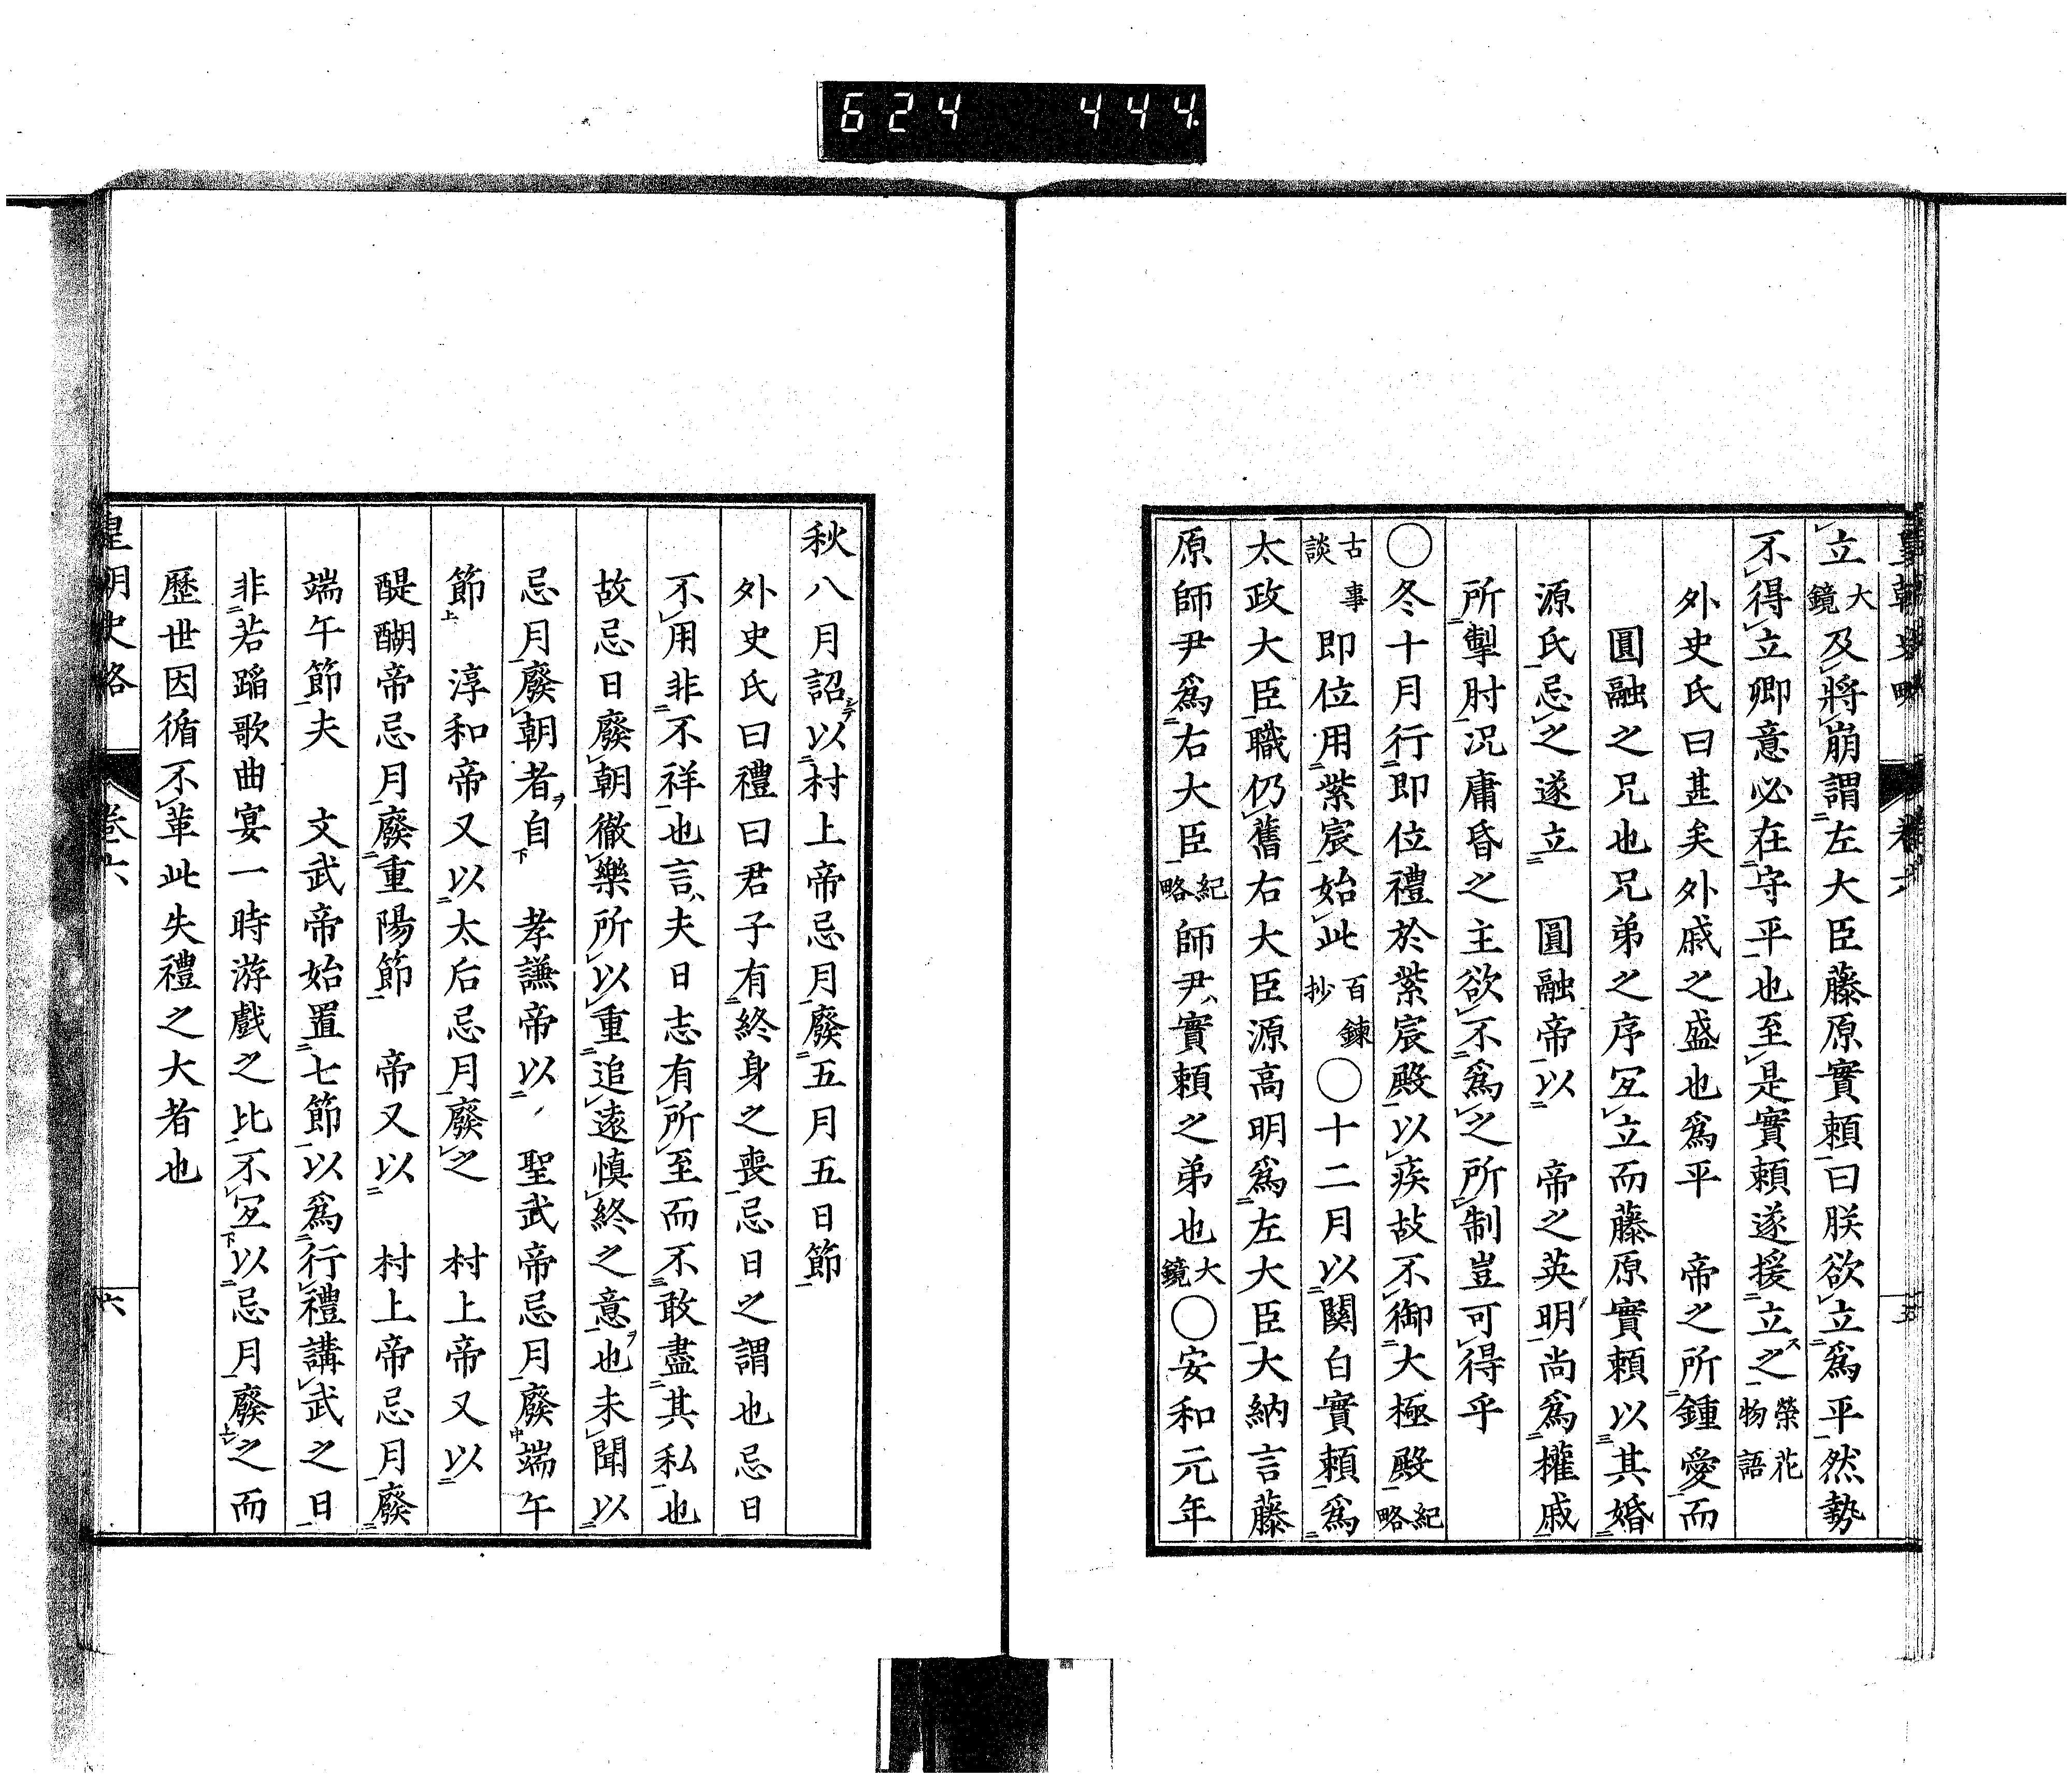 624 444
皇朝史略 卷六
立大鏡及將崩謂左大臣藤原實賴曰朕欲立爲平然勢
不得立卿意必在守平也至是實賴遂援立之榮花物語
外史氏曰甚矣外戚之盛也爲平 帝之所鍾愛而
圓融之兄也兄弟之序冝立而藤原實賴以其婚
源氏忌之遂立 圓融帝以 帝之英明尚爲權戚
所掣肘况庸昏之主欲不爲之所制豈可得乎
〇冬十月行即位禮於紫宸殿以疾故不御大極殿紀略
古事談即位用紫宸始此百鍊抄〇十二月以関白實賴爲
太政大臣職仍舊右大臣源高明爲左大臣大納言藤
原師尹爲右大臣紀略師尹實賴之弟也大鏡〇安和元年
秋八月詔以村上帝忌月廢五月五日節
外史氏曰禮曰君子有終身之喪忌日之謂也忌日
不用非不祥也言夫日志有所至而不敢盡其私也
故忌日廢朝徹樂所以重追遠慎終之意也未聞以
忌月廢朝者自 孝謙帝以 聖武帝忌月廢端午
節 淳和帝又以太后忌月廢之 村上帝又以
醍醐帝忌月廢重陽節 帝又以 村上帝忌月廢
端午節夫 文武帝始置七節以爲行禮講武之日
非若蹈歌曲宴一時游戲之比不冝以忌月廢之而
歷世因循不革此失禮之大者也
皇朝史略 卷六 六